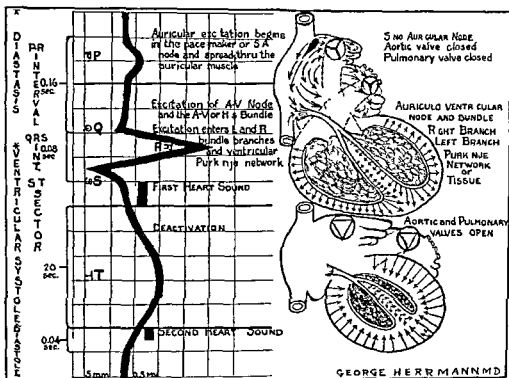 DIASTASIS
*VENTRICULAR SYSTOLE
DIASTOLE
PR INTERVAL
QRS INT.
ST SECTOR
P
0.16 SEC.
Q
0.08 SEC.
R
S
T
.20 SEC.
0.04 SEC.
5 mm
0.5 Mv
Auricular excitation begins
in the pacemaker or S A
node and spread thru the
auricular muscle
Excitation of A-V Node
and the A-V or H s Bundle
Excitation enters L and R
bundle branches
and ventricular
Purk nje network
FIRST HEART SOUND
DEACTIVATION
SECOND HEART SOUND
S NO AURICULAR NODE
Aortic valve closed
Pulmonary valve closed
AURICULO VENTR CULAR
NODE AND BUNDLE
R GHT BRANCH
LEFT BRANCH
PURK NJE
NETWORK
OR
TISSUE
AORTIC AND PULMONARY
VALVES OPEN
GEORGE HERRMANN MD